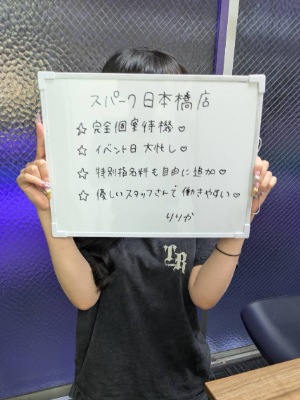 スパーク日本橋店
☆完全個室待機♡
☆イベント日大忙し♡
☆特別指名料も自由に追加♡
☆優しいスタッフさんで働きやすい♡
りりか
TR